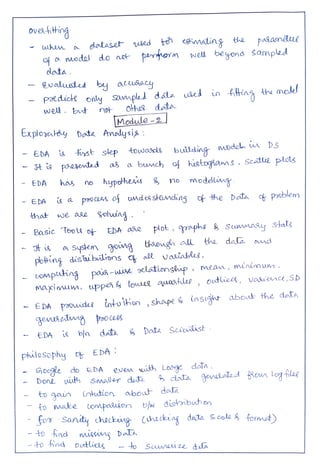 Overfitting
- when a dataset used for estimating the parameter
of a model do not perform well beyond sampled
data.
- Evaluated by accuracy
- predicts only sampled data used in fitting the model
well. but not other data.
Module-2
Exploratory Data Analysis:
- EDA is first step towards building models in DS
- It is presented as a bunch of histograms, scatter plots
- EDA has no hypothesis & no modelling.
- EDA is a process of understanding of the Data of problem
that we are solving.
- Basic Tools of EDA are plot, graphs & summary stats
- It is a system going through all the data and
plotting distributions of all variables.
- computing pair-wise relationship, mean, minimum,
maximum, upper & lower quartiles, outliers, variance, SD
- EDA provides intuition, shape & insight about the data
generating process
- EDA is b/n data & Data Scientist.
philosophy of EDA:
- Google do EDA even with Large data.
- Done with smaller data & data generated from log files
- to gain intuition about data
- to make comparison b/w distribution
- for Sanity checking (checking data scale & format)
- to find missing Data
- to find outliers - to summarize data